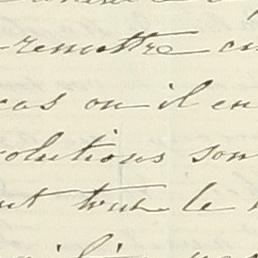 remettre en
cas ou il en
volutions son
ut tout le